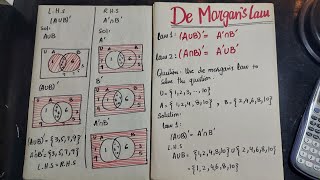 L.H.S
(A∪B)'
Sol:
A∪B
(A∪B)'
(A∪B)' = {3,5,7,9}
A'∩B' = {3,5,7,9}
L.H.S = R.H.S
R.H.S
A'∩B'
Sol:
A'
B'
A'∩B'
De Morgan's Law
Law 1: (A∪B)' = A'∩B'
Law 2: (A∩B)' = A'∪B'
Question: Use de morgan's law to
solve the question.
U = {1,2,3,...,10}
A = {1,2,4,8,10}, B = {2,4,6,8,10}
Solution:
Law 1:
(A∪B)' = A'∩B'
L.H.S
A∪B = {1,2,4,8,10} ∪ {2,4,6,8,10}
= {1,2,4,6,8,10}